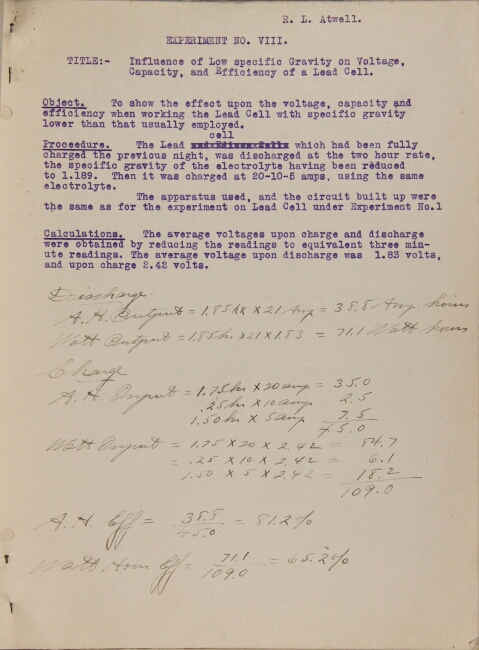 R. L. Atwell.
EXPERIMENT NO. VIII.
TITLE:- Influence of Low specific Gravity on Voltage,
Capacity, and Efficiency of a Lead Cell.
Object. To show the effect upon the voltage, capacity and
efficiency when working the Lead Cell with specific gravity
lower than that usually employed.
cell
Proceedure. The Lead which had been fully
charged the previous night, was discharged at the two hour rate,
the specific gravity of the electrolyte having been reduced
to 1.189. Then it was charged at 20-10-5 amps, using the same
electrolyte.
The apparatus used, and the circuit built up were
the same as for the experiment on Lead Cell under Experiment No.1
Calculations. The average voltages upon charge and discharge
were obtained by reducing the readings to equivalent three min-
ute readings. The average voltage upon discharge was 1.83 volts,
and upon charge 2.42 volts.
Discharge.
A.H. Output = 1.85 hr × 21 Amp = 38.8 Amp. hours
Watt Output = 1.85 hr × 21 × 1.83 = 71.1 Watt hours
Charge
A.H. Input = 1.75 hr × 20 amp = 35.0
.25 hr × 10 amp 2.5
1.50 hr × 5 amp 7.5
45.0
Watt Input = 1.75 × 20 × 2.42 = 84.7
= .25 × 10 × 2.42 = 6.1
1.50 × 5 × 2.42 = 18.2
109.0
A.H. Eff = 38.8 / 45.0 = 81.2%
Watt Hour Eff = 71.1 / 109.0 = 65.2%